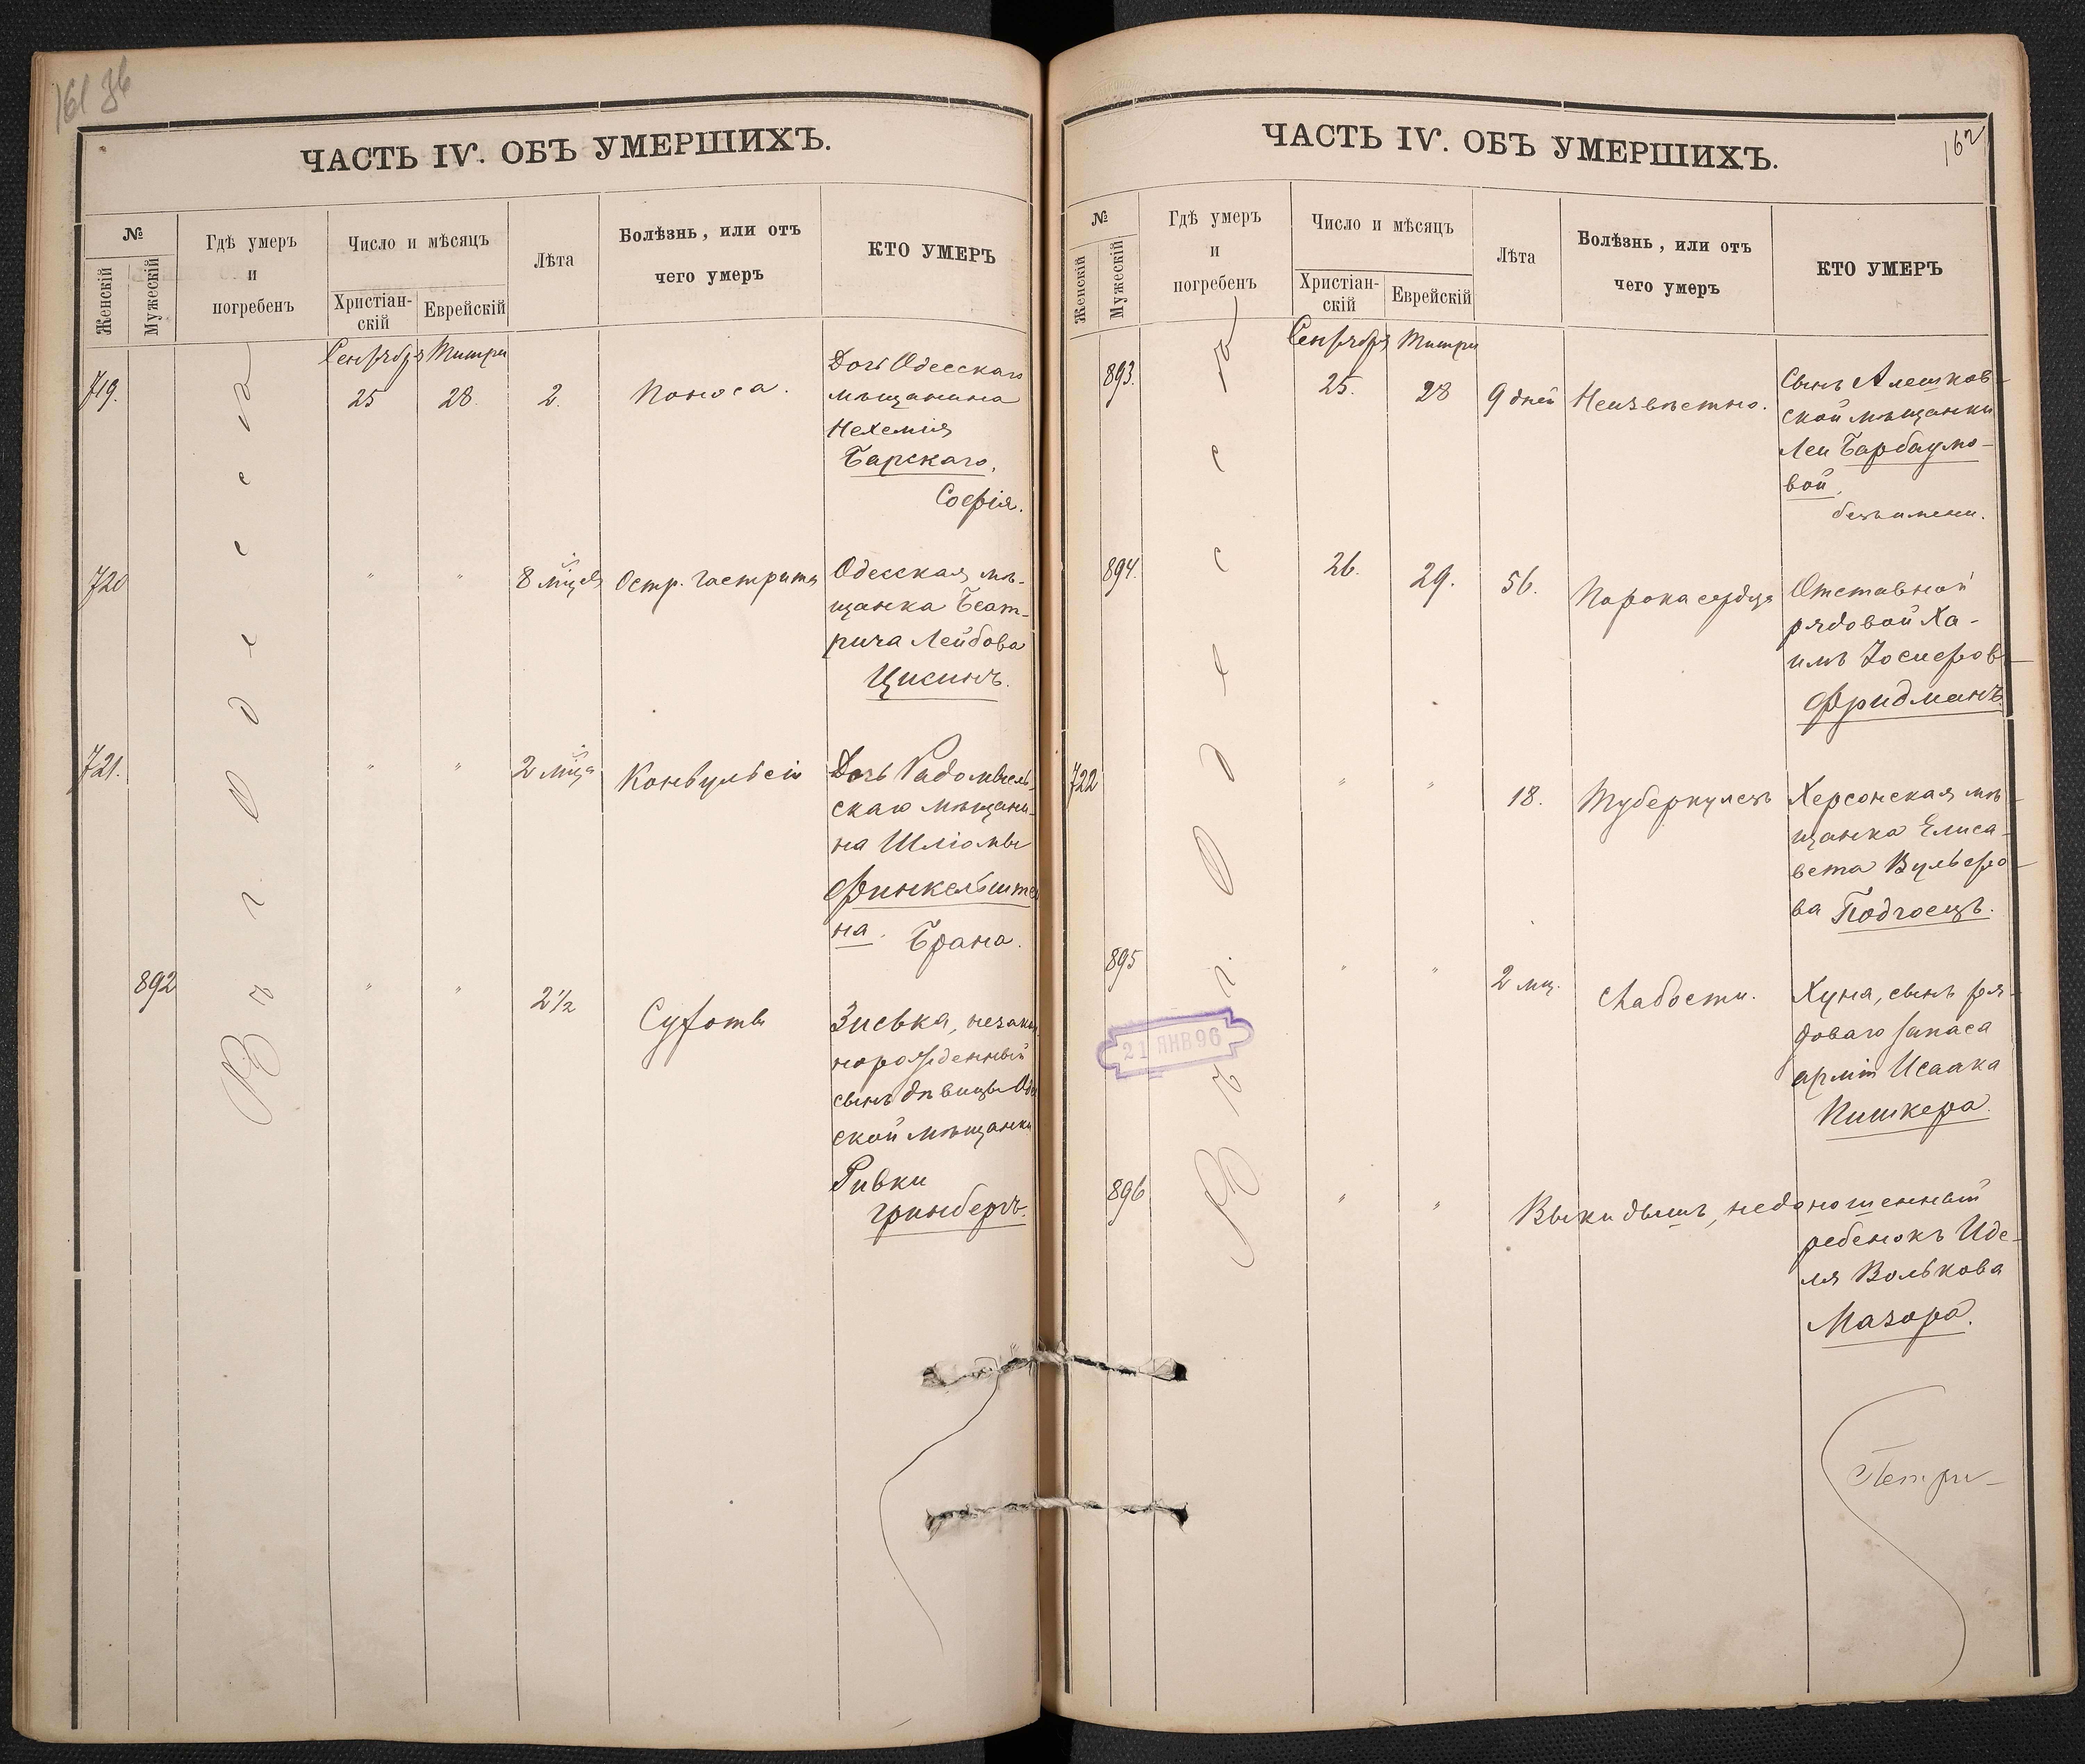 161 36
ЧАСТЬ IV. ОБЪ УМЕРШИХЪ.
№
Женскій
Мужескій
Гдѣ умеръ
и
погребенъ
Число и мѣсяцъ
Христіан-
скій
Еврейскій
Лѣта
Болѣзнь, или отъ
чего умеръ
КТО УМЕРЪ
Въ г. Одессѣ
Сентября Тишри
719.
25
28.
2.
Поноса.
Дочь Одесскаго
мѣщанина
Нехемія
Барскаго,
Софія.
720
"
"
8 мѣсяц.
Остр. гастрита
Одесская мѣ-
щанка Беат-
рича Лейбова
Цисинъ.
721.
"
"
2 мѣца
Конвульсіи
Дочь Радомысль-
скаго мѣщани-
на Шліомы
Финкельштей
на. Брана.
892
"
"
2 1/2
Сухоты
Зиська, незакон
норожденный
сынъ дѣвицы Одес
ской мѣщанки
Ривки
Гринбергъ.
162
ЧАСТЬ IV. ОБЪ УМЕРШИХЪ.
№
Женскій
Мужескій
Гдѣ умеръ
и
погребенъ
Число и мѣсяцъ
Христіан-
скій
Еврейскій
Лѣта
Болѣзнь, или отъ
чего умеръ
КТО УМЕРЪ
Въ г. Одессѣ
Сентября Тишри
893.
25.
28
9 дней
Неизвѣстно.
Сынъ Алешков-
ской мѣщанки
Леи Барбаумо-
вой,
безъ имени.
894.
26.
29.
56.
Порока сердца
Отставной
рядовой Ха-
имъ Іосифовъ
Фридманъ.
722
"
"
18.
Туберкулезъ
Херсонская мѣ-
щанка Елиса-
вета Вульфо-
ва Подгоецъ.
895
"
"
2 мц.
Слабости.
Хуна, сынъ ря-
доваго запаса
арміи Исаака
Пишкера.
21 ЯНВ 96
896
"
"
Выкидышъ, недоношенный
ребенокъ Иде-
ля Волькова
Мазора.